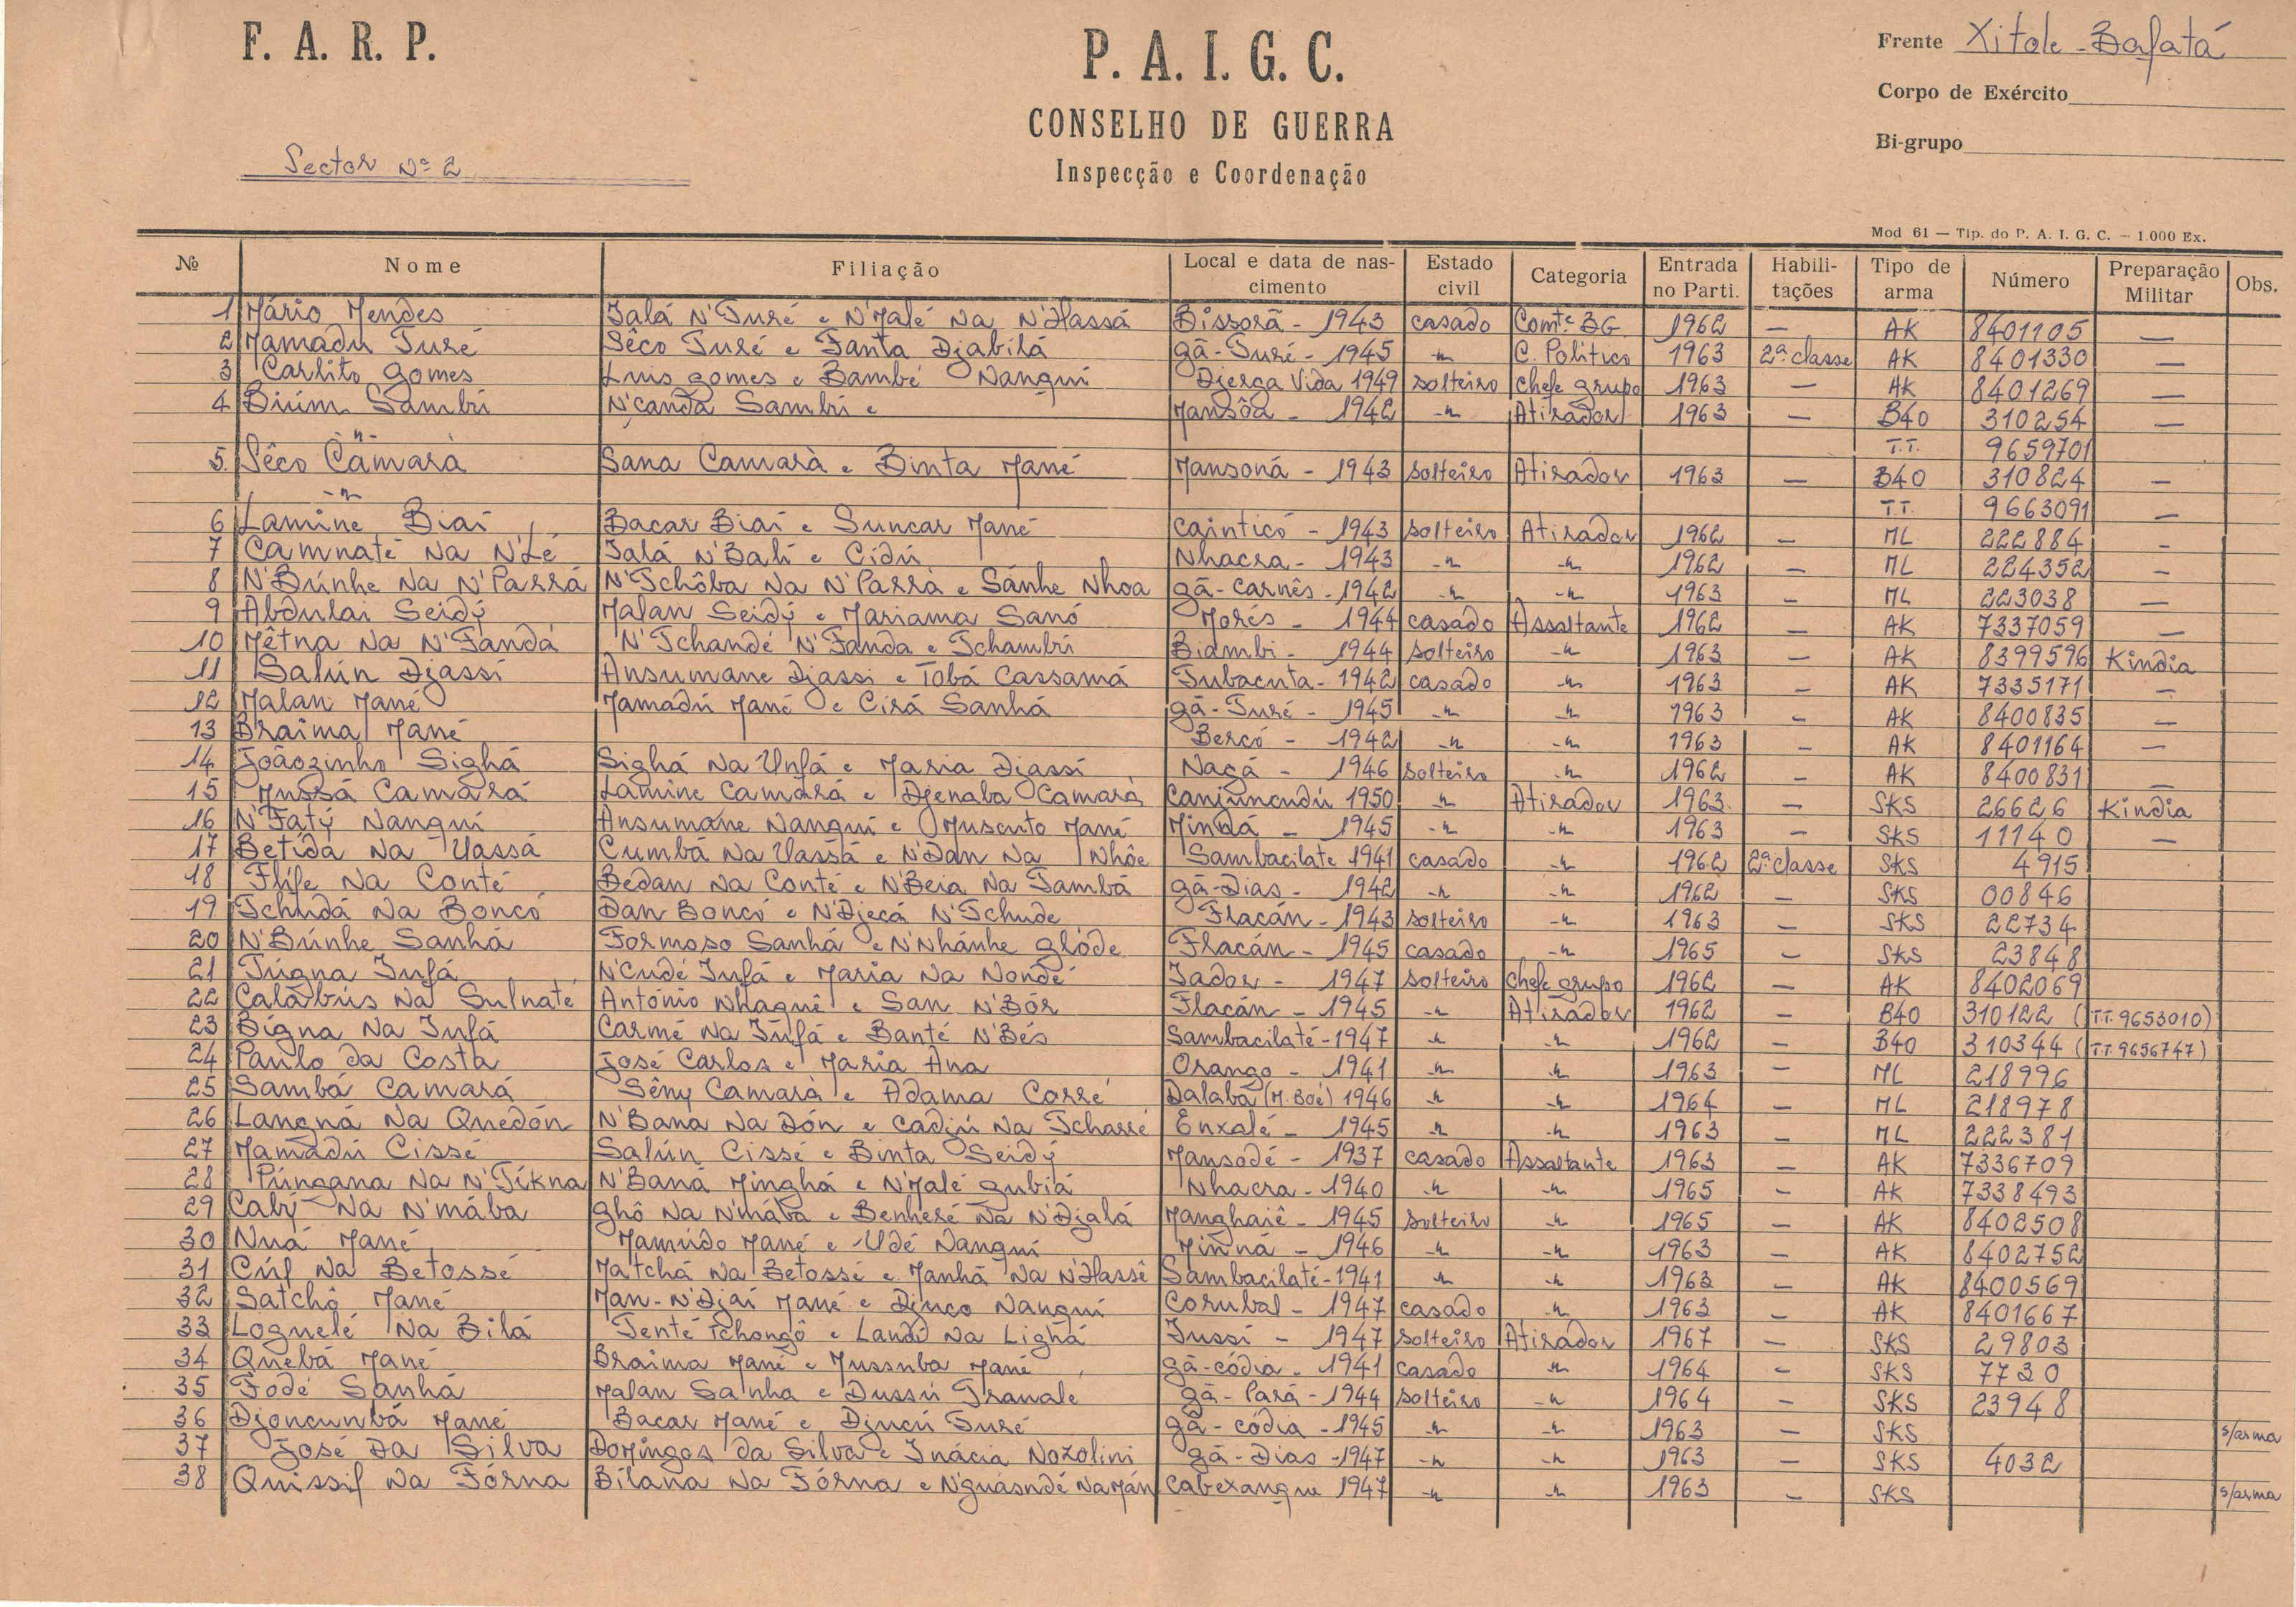 F. A. R. P.
P. A. I. G. C.
CONSELHO DE GUERRA
Inspecção e Coordenação
Frente Xitole - Bafatá
Corpo de Exército
Bi-grupo
Sector Nº 2
Mod 61 — Tip. do P. A. I. G. C. — 1.000 Ex.
Nº Nome Filiação Local e data de nas- cimento Estado civil Categoria Entrada no Parti. Habili- tações Tipo de arma Número Preparação Militar Obs.
1 Mário Mendes Ialá N'Turé e N'Malé Na N'Hassá Bissorã - 1943 casado Comte BG 1962 — AK 8401105 —
2 Mamadu Turé Sêco Turé e Fanta Djabilá gã-Turé - 1945 -"- C. Politico 1963 2ª classe AK 8401330 —
3 Carlito gomes Luis gomes e Bambé Nangui Djerça Vida 1949 solteiro chefe grupo 1963 — AK 8401269 —
4 Biúm Sambú N'canda Sambú e Mansôa - 1942 -"- Atirador 1963 — B40 310254 —
-"- T.T. 9659701
5 Sêco Camarà Sana Camarà e Binta Mané Mansoná - 1943 solteiro Atirador 1963 — B40 310824 —
-"- T.T. 9663091 —
6 Lamine Biai Bacar Biai e Suncar Mané Cainticó - 1943 solteiro Atirador 1962 — ML 222884 —
7 Camnaté Na N'Lé Ialá N'Bali e Cidú Nhacra - 1943 -"- -"- 1962 — ML 224352 —
8 N'Búnhe Na N'Parrá N'Tchôba Na N'Parrà e Sánhe Nhoa gã-Carnês - 1942 -"- -"- 1963 — ML 223038 —
9 Abdulai Seidý Malan Seidý e Mariama Sanó Morés - 1944 casado Assaltante 1962 — AK 7337059 —
10 Mêtna Na N'Fandá N'Tchandé N'Fanda e Tchambú Biambi - 1944 solteiro -"- 1963 — AK 8399596 Kindia
11 Salún Djassi Ansumane Djassi e Tobá Cassamá Tubacuta - 1942 casado -"- 1963 — AK 7335171 —
12 Malan Mané Mamadú Mané e Cirá Sanhá gã-Turé - 1945 -"- -"- 1963 — AK 8400835 —
13 Braima Mané Bercó - 1942 -"- -"- 1963 — AK 8401164 —
14 Joãozinho Sighá Sighá Na Unfá e Maria Djassi Nagá - 1946 solteiro -"- 1962 — AK 8400831 —
15 Mussá Camará Lamine Camará e Djenaba Camarà Canjuncudú 1950 -"- Atirador 1963 — SKS 26626 Kindia
16 N'Fatý Nangui Ansumane Nangui e Muscuto Mané Mindá - 1945 -"- -"- 1963 — SKS 11140 —
17 Betidá Na Uassá Cumbá Na Uassá e N'Dan Na Nhôe Sambacilate 1941 casado -"- 1962 2ª classe SKS 4915
18 Flife Na Conté Bedan Na Conté e N'Beia Na Tambá gã-Dias - 1942 -"- -"- 1962 — SKS 00846
19 Tchudá Na Boncó Dan Boncó e N'Djecá N'Tchude Flacán - 1943 solteiro -"- 1963 — SKS 22734
20 N'Búnhe Sanhá Formoso Sanhá e N'Nhánhe glóde Flacán - 1945 casado -"- 1965 — SKS 23848
21 Túgna Iufá N'Cudé Iufá e Maria Na Nondé Jador - 1947 solteiro chefe grupo 1962 — AK 8402069
22 Calabús Na Sulnaté António Nhaguê e San N'Bór Flacán - 1945 -"- Atirador 1962 — B40 310122 (T.T. 9653010)
23 Bigna Na Iufá Carmé Na Iufá e Banté N'Bés Sambacilaté - 1947 -"- -"- 1962 — B40 310344 (T.T. 9656747)
24 Paulo da Costa José Carlos e Maria Ana Orango - 1941 -"- -"- 1963 — ML 218996
25 Sambá Camará Sêny Camarà e Adama Corré Dalabá (M. Boé) 1946 -"- -"- 1964 — ML 218978
26 Langná Na Quedón N'Bana Na Dón e Cadjú Na Tcharré Enxalé - 1945 -"- -"- 1963 — ML 222381
27 Mamadú Cissé Salún Cissé e Binta Seidý Mansodé - 1937 casado Assaltante 1963 — AK 7336709
28 Púngana Na N'Tíkna N'Baná Minghá e N'Malé gubiá Nhacra - 1940 -"- -"- 1965 — AK 7338493
29 Cabý Na N'mába ghô Na N'mába e Benheré Na N'Djalá Manghaiê - 1945 solteiro -"- 1965 — AK 8402508
30 Nuá Mané Mamúdo Mané e Udé Nangui Minná - 1946 -"- -"- 1963 — AK 8402752
31 Cúf Na Betossé Matchá Na Betossé e Manhã Na N'Hassê Sambacilaté - 1941 -"- -"- 1963 — AK 8400569
32 Satchô Mané Man-N'Djai Mané e Djuco Nangui Corubal - 1947 casado -"- 1963 — AK 8401667
33 Loguelé Na Bilá Tenté Tchongô e Landú Na Lighá Iussi - 1947 solteiro Atirador 1967 — SKS 29803
34 Quebá Mané Braima Mané e Mussuba Mané gã-códia - 1941 casado -"- 1964 — SKS 7730
35 Fodé Sanhá Malan Sanha e Dussú Tranale gã-Pará - 1944 solteiro -"- 1964 — SKS 23948
36 Djoncunbá Mané Bacar Mané e Djucú Turé gã-códia - 1945 -"- -"- 1963 — SKS s/arma
37 José Da Silva Domingos da Silva e Inácia Nozolini gã-Dias - 1947 -"- -"- 1963 — SKS 4032
38 Quissif Na Fórna Bilana Na Fórna e N'guásndé Na Mán Cabexangue 1947 -"- -"- 1963 — SKS s/arma